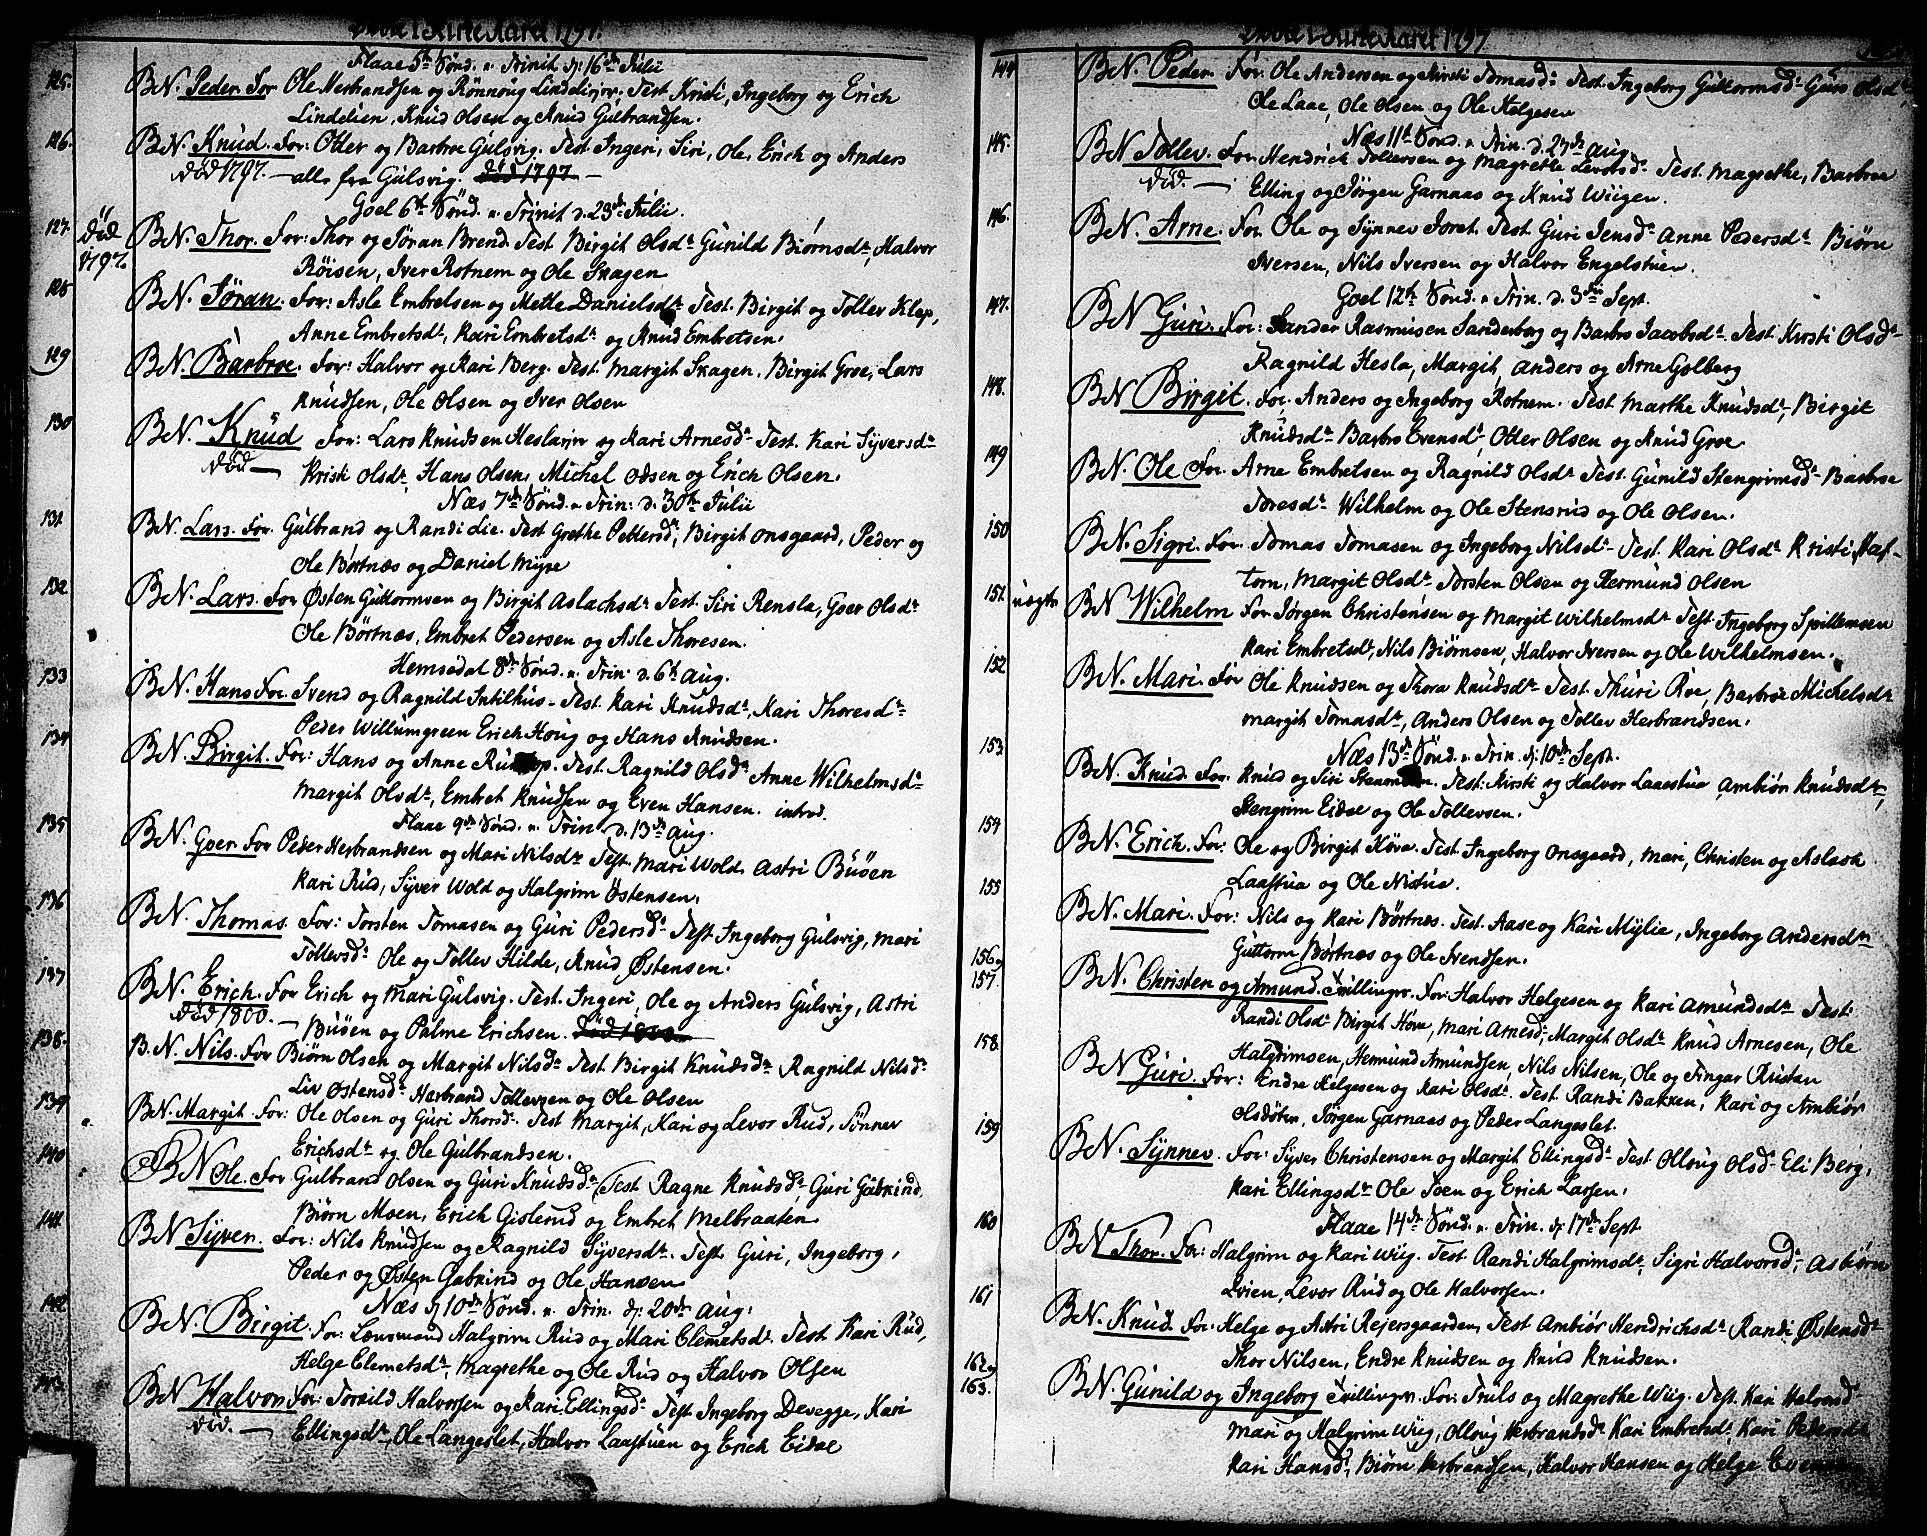 Døbte i Kirke Aaret 1797.
Flaae 5te Sønd. a. Trinit. d: 16de Julii
125. BN. Peder. For Ole Herbrandsen og Rønnoug Lindelien. Test. Kristi, Ingeborg og Erich
Lindelien, Knud Olsen og Knud Gulbrandsen.
126. BN. Knud. For: Otter og Barbroe Gulsvig. Test. Ingeri, Siri, Ole, Erich og Anders
død 1797. — alle fra Gulsvig. død 1797 —
Goel 6te Sønd. a. Trinit. d. 23de Julii.
127. død 1797. BN. Thor. For: Thor og Jøran Brend. Test. Birgit Olsdr. Gunild Biørnsdr., Halvor
Røisen, Iver Rotnem og Ole Skagen
128 BN. Jøran. For: Asle Embretsen og Mette Danielsdr. Test. Birgit og Tollev Klep,
Anne Embretsdr., Kari Embretsdr. og Knud Embretsen.
129 BN. Barbroe. For: Halvor og Kari Berg. Test. Margit Skagen, Birgit Groe, Lars
Knudsen, Ole Olsen og Iver Olsen
130 BN. Knud For: Lars Knudsen og Kari Arnesdr. Test. Kari Syversdr.
død — Kristi Olsdr., Hans Olsen, Michel Olsen og Erich Olsen.
Næs 7de Sønd. a. Trin: d. 30te Julii
131 BN. Lars. For. Gulbrand og Randi Lie. Test. Grethe Pettersdr., Birgit Onsgaard, Peder og
Ole Børtnæs og Daniel Myre
132 BN. Lars. For Østen Guttormsen og Birgit Aslachsdr. Test. Siri Rensla, Goer Olsdr.
Ole Børtnæs, Embret Pedersen og Asle Thoresen.
Hemsedal 8de Sønd. a. Trin. d. 6te Aug.
133 BN. Hans For. Svend og Ragnild Intilhus. Test. Kari Knudsdr., Kari Thoresdr.
Peder Willumgreen Erich Houg og Hans Knudsen.
134 BN. Birgit. For: Hans og Anne. Test. Ragnild Olsdr. Anne Wilhelmsdr.
Margit Olsdr., Embret Knudsen og Even Hansen. introd.
Flaae 9de Sønd. a. Trin. d. 13de Aug.
135 BN. Goer. For Peder Herbrandsen og Mari Nilsdr. Test. Mari Wold, Astri Buøen
Kari Rud, Syver Wold og Halgrim Østensen.
136 BN. Thomas. For: Torsten Tomasen og Guri Pedersdr. Test. Ingeborg Gulsvig, Mari
Tollevsdr. Ole og Tollev Hilde, Knud Østensen.
137 BN. Erich. For Erich og Mari Gulsvig. Test. Ingeri, Ole og Anders Gulsvig, Astri
død 1800. — Buøen og Palme Erichsen. død 1800
138. B.N. Nils. For Biørn Olsen og Margit Nilsdr. Test. Birgit Knudsdr. Ragnild Nilsdr.
Liv Østensdr. Herbrand Tollevsen og Ole Olsen
139 BN. Margit. For: Ole Olsen og Guri Thorsdr. Test. Margit, Kari og Levor Rud, Synnev
Erichsdr. og Ole Gulbrandsen.
140 BN Ole. For Gulbrand Olsen og Guri Knudsdr. Test. Ragne Knudsdr., Guri Gubrind,
Biørn Moen, Erich Gislerud og Embret Melbraaten
141. BN Syver. For: Nils Knudsen og Ragnild Syversdr. Test. Guri, Ingeborg,
Peder og Østen Gubrind og Ole Hansen
Næs d: 10de Sønd. a. Trin. d: 20de Aug:
142 BN. Birgit. For: Lensmand Halgrim Rud og Mari Clemetsdr. Test. Kari Rud,
Helge Clemetsdr., Magrethe og Ole Rud og Halvor Olsen
143. BN Halvor For: Torkild Halvorsen og Kari Ellingsdr. Test. Ingeborg Devegge, Kari
død. — Ellingsdr., Ole Langeslet, Halvor Laastuen og Erich Eidal
Døbte i Kirke Aaret 1797
144 BN. Peder. For. Ole Andersen og Kirsti Tomasdr. Test. Ingeborg Guttormsdr. Guro Olsdr.,
Ole Laae, Ole Olsen og Ole Helgesen
Næs 11te Sønd. a. Trin. d. 27de Aug.
145. BN Tollev. For Hendrick Tollevsen og Magrethe Levorsdr. Test. Magrethe, Barbroe
død. — Elling og Jørgen Garnaas og Knud Wiigen.
146. BN. Arne. For. Ole og Synnev Foret. Test. Guri Jensdr. Anne Pedersdr. Biørn
Iversen, Nils Iversen og Halvor Engelstuen.
Goel 12te Sønd. a. Trin. d. 3die Sept.
147. BN Guri. For: Sander Rasmusen Sanderborg og Barbro Jacobsdr. Test. Kirsti Olsdr.
Ragnild Hesla, Margit, Anders og Arne Golberg
148. BN Birgit. For. Anders og Ingeborg Rotnem. Test. Marthe Knudsdr. Birgit
Knudsdr. Barbro Evensdr., Otter Olsen og Knud Groe
149 BN. Ole For. Arne Embretsen og Ragnild Olsdr. Test. Gunild Stengrimsdr. Barbroe
Toresdr. Wilhelm og Ole Stensrud og Ole Olsen.
150 BN. Sigri. For. Tomas Tomasen og Ingeborg Nilsdr. Test. Kari Olsdr. Kristi Haf-
torn, Margit Olsdr. Torsten Olsen og Hermund Olsen
151. uægte BN Wilhelm For Jørgen Christensen og Margit Wilhelmsdr. Test. Ingeborg Spillemsen
Kari Embretsdr., Nils Biørnsen, Halvor Iversen og Ole Wilhelmsen.
152 BN. Mari. For Ole Knudsen og Thora Knudsdr. Test. Thuri Roe, Barbroe Michelsdr.
Margit Tomasdr., Anders Olsen og Tollev Herbrandsen.
Næs 13de Sønd. a. Trin. d: 10de Sept.
153. BN. Knud. For. Knud og Siri. Test: Kirsti og Halvor Laastua, Ambiør Knudsdr.,
Stengrim Eidal og Ole Tollevsen.
154 BN. Erich. For. Ole og Birgit Hove. Test. Ingeborg Onsgaard, Mari, Christen og Aslach
Laastua og Ole Nistua.
155 BN. Mari. For: Nils og Kari Børtnæs. Test. Aase og Kari Mylie, Ingeborg Andersdr.
Guttorm Børtnæs og Ole Svendsen.
156 og 157 BN. Christen og Amund. Tvillinger. For: Halvor Helgesen og Kari Amundsdr. Test:
Randi Olsdr. Birgit Hove, Mari Arnesdr., Margit Olsdr. Knud Arnesen, Ole
Halgrimsen, Hermund Amundsen, Nils Nilsen, Ole og Fingar Kristen
158. BN Guri. For: Endre Helgesen og Kari Olsdr. Test. Randi Bakken, Kari og Ambiør
Olsdøtre, Jørgen Garnaas og Peder Langeslet.
159 BN. Synnev. For: Syver Christensen og Margit Ellingsdr. Test. Olloug Olsdr. Eli Berg,
Kari Ellingsdr. Ole Toen og Erich Larsen.
Flaae 14de Sønd. a. Trin. d: 17de Sept
160 BN Thor. For: Halgrim og Kari Wiig. Test. Randi Halgrimsdr., Sigri Halvorsdr., Asbiørn
Lvien, Levor Rud og Ole Halvorsen.
161 BN. Knud. For: Helge og Astri Rejersgaarden, Test. Ambiør Hendrichsdr. Randi Østensdr.
Thor Nilsen, Endre Knudsen og Knud Knudsen.
162 og 163. BN. Gunild og Ingeborg Tvillinger. For: Truls og Magrethe Wiig. Test. Kari Halvorsd
Mari og Halgrim Wiig, Olloug Herbrandsdr. Kari Embretsdr., Kari Pedersdr.
Kari Hansdr., Biørn Herbrandsen, Halvor Hansen og Helge